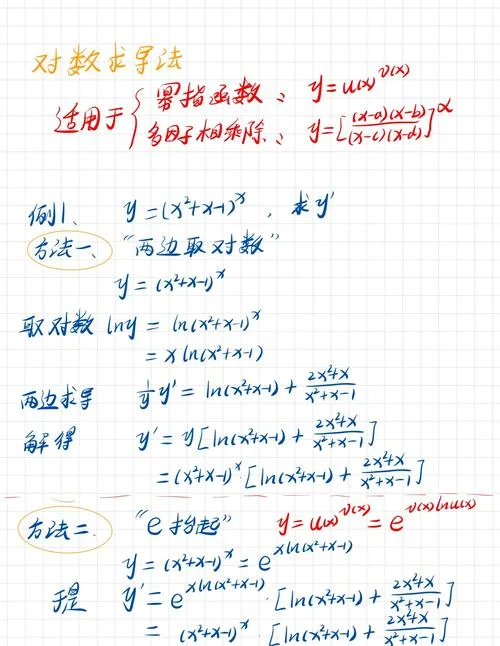 对数求导法
适用于{幂指函数： y=u(x)^v(x)
多因子相乘除： y=[(x-a)(x-b)/(x-c)(x-d)]^α
例1、 y=(x²+x-1)^x ，求y'
方法一、 “两边取对数”
y=(x²+x-1)^x
取对数 lny = ln(x²+x-1)^x
= x ln(x²+x-1)
两边求导 1/y y' = ln(x²+x-1) + (2x²+x)/(x²+x-1)
解得 y' = y[ln(x²+x-1) + (2x²+x)/(x²+x-1)]
= (x²+x-1)^x [ln(x²+x-1) + (2x²+x)/(x²+x-1)]
方法二、 “e抬起” y=u(x)^v(x) = e^(v(x)lnu(x))
y = (x²+x-1)^x = e^(xln(x²+x-1))
于是 y' = e^(xln(x²+x-1)) · [ln(x²+x-1) + (2x²+x)/(x²+x-1)]
= (x²+x-1)^x · [ln(x²+x-1) + (2x²+x)/(x²+x-1)]